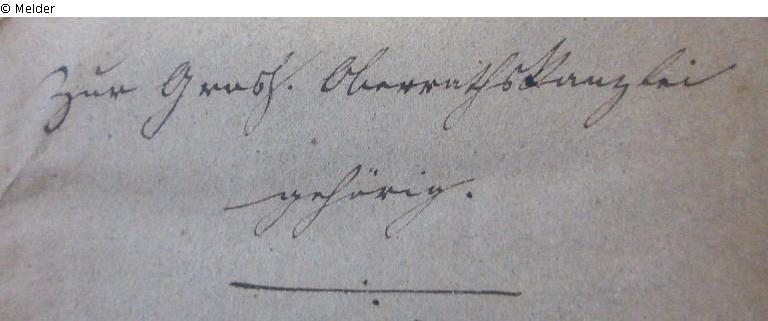 © Melder
Zur Grosh. Oberrathskanzlei
gehörig.